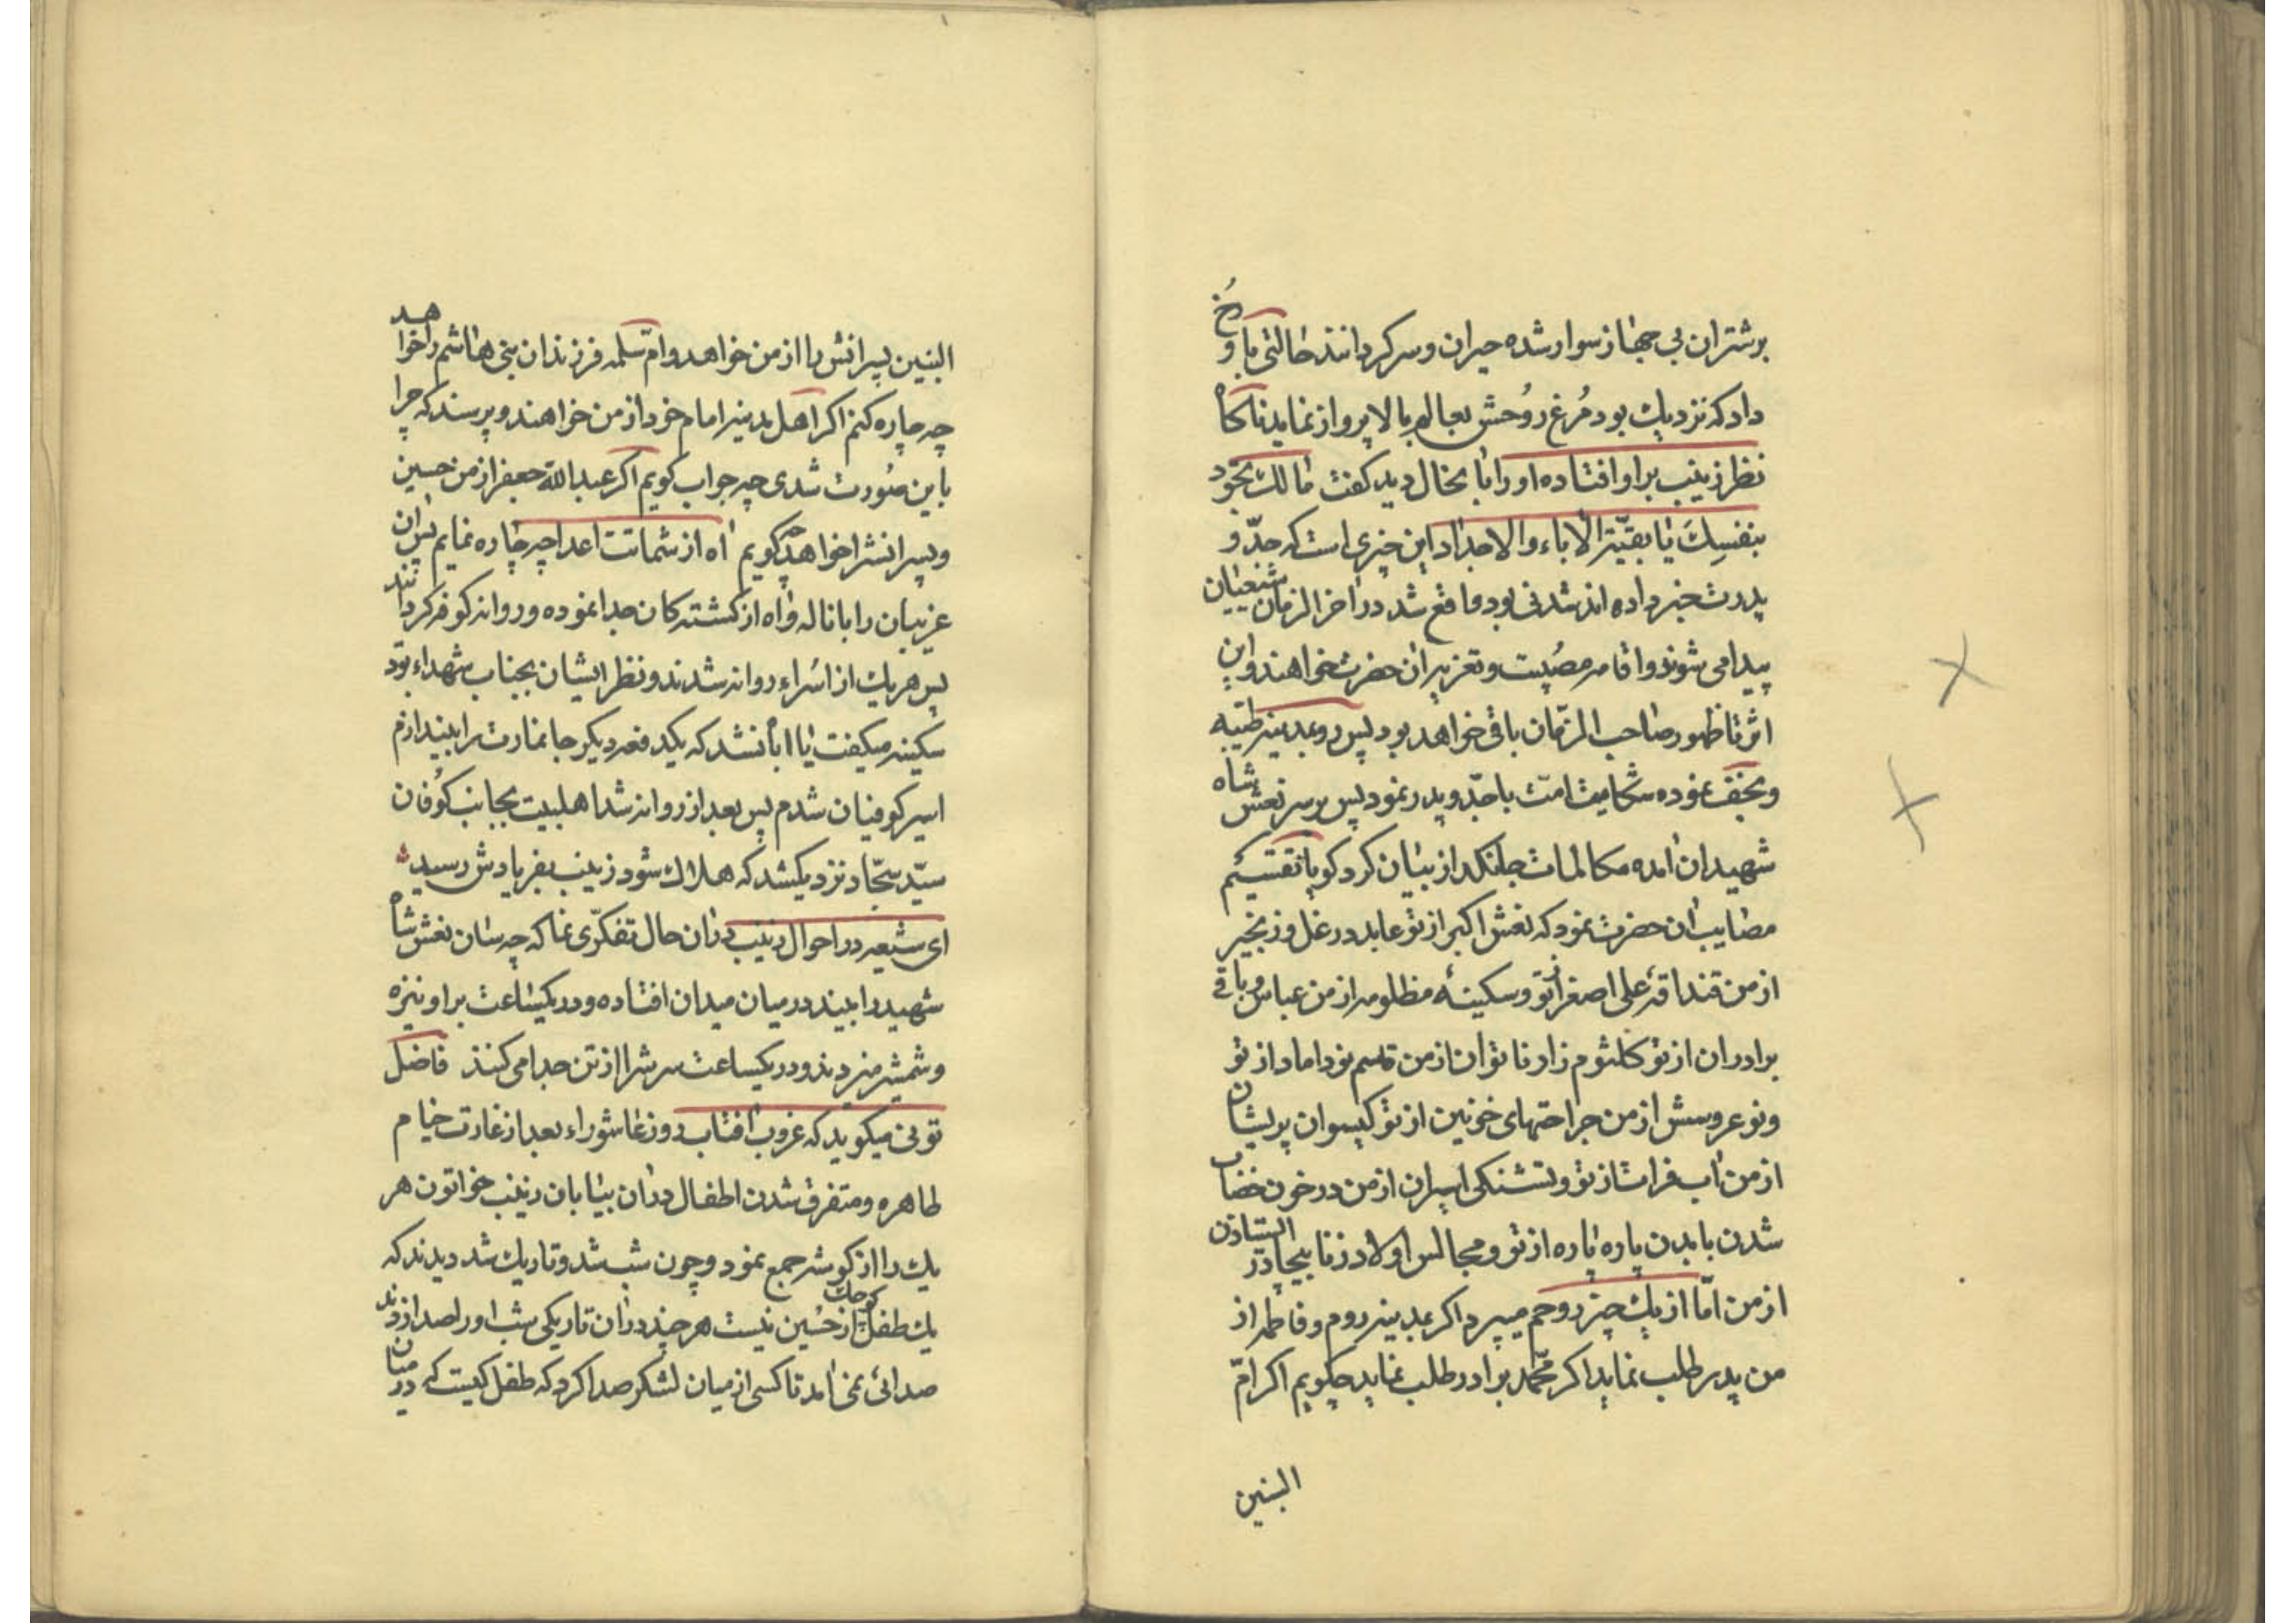 برشتران بی جهاز سوار شده حیران و سرکردانند حالتی باو رُخ
داد که نزدیك بود مُرغ روُحش بعالم بالا پرواز نماید ناکاه
نظر زینب براو افتاده اورا با نحال دید کفت مالك تجوُد
بنفسِكَ یا بقیّة الاباء والاجداد این چیزی است که جدّ و
پدرت خبر داده اند شدنی بود واقع شد در اخر الزمان شیعیان
پیدا می شوند واقامه مصُیبت و تعزیه ان حضرت خواهند واین
اثر تا ظهور صاحب الزمّان باقی خواهد بود پس رو بمدینه طیّبه
ونجف نموده شکایت امّت باجدّ و پدر نمود پس بر سر نعش شاه
شهیدان امده مکالمات جانکداز بیان کرد کویا تقسیم
مصایب ان حضرت نمود که نعش اکبر از تو عابد در غل و زنجیر
از من قنداقهٔ علی اصغر از تو و سکینهٔ مظلومه از من عباس و باقی
برادران از تو کلثوم زار ناتوان از من قاسم نو داماد از تو
و نو عروسش از من جراحتهای خونین از تو کیسوان پریشان
از من اب فرات از تو و تشنکی اسیران از من در خون خضاب
شدن با بدن پاره پاره از تو و مجالس اولاد زنا بیچادر ایستادن
از من امّا از یك چیز روحم میپرد اکر بمدینه روم و فاطمه از
من پدر طلب نماید اکر محمّد برادر طلب نماید چکویم اکر امّ
البنین
البنین پسرانش را از من خواهد وامّ سلمه فرزندان بنی هاشم را خواهد
چه چاره کنم اکر اهل مدینه امام خود از من خواهند و پرسند که چرا
باین صوُرت شدی چه جواب کویم اکر عبدالله جعفر از من حسین
و پسرانش را خواهد چه کویم اه از شماتت اعدا چه چاره نمایم پس ان
غریبان را با ناله واه از کشته کان جدا نموده و روانه کوفه کردانند
پس هریك از اسُراء روانه شدند و نظر ایشان بجناب شهداء بوُد
سکینه میکفت یا ابا نشد که یکدفعه دیکر جا نمازت را بیندازم
اسیر کوفیان شدم پس بعد از روانه شدا هلبیت بجانب کوُفان
سیّد سجّاد نزدیکشد که هلاك شود زینب بفریادش رسید
ای شیعه در احوال زینب دران حال تفکرّی نما که چه سان نعش شاه
شهید را ببیند در میان میدان افتاده و در یکساعت بر او نیزه
و شمشیر میزدند و در یکساعت سرش را از تن جدا می کنند فاضل
تونی میکوید که غروب افتاب روز عاشوراء بعد از غارت خیام
طاهره و متفرق شدن اطفال دران بیابان زینب خواتون هر
یك را از کوشه جمع نمود و چون شب شد و تاریك شد دیدند که
یك طفل کوچك از حُسین نیست هر چند دران تاریکی شب او را صدا زدند
صدائی نمی امد تا کسی از میان لشکر صدا کرد که طفل کیست که در میان